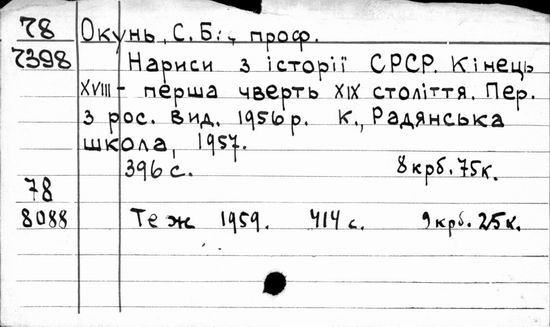 78 Окунь, С.Б., проф.
7398 Нариси з історії СРСР. Кінець
XVIII - перша чверть XIX століття. Пер.
з рос. Вид. 1956 р. К., Радянська
школа, 1957.
396 с. 8 крб. 75 к.
78
8088 Те ж 1959. 414 с. 9 крб. 25 к.